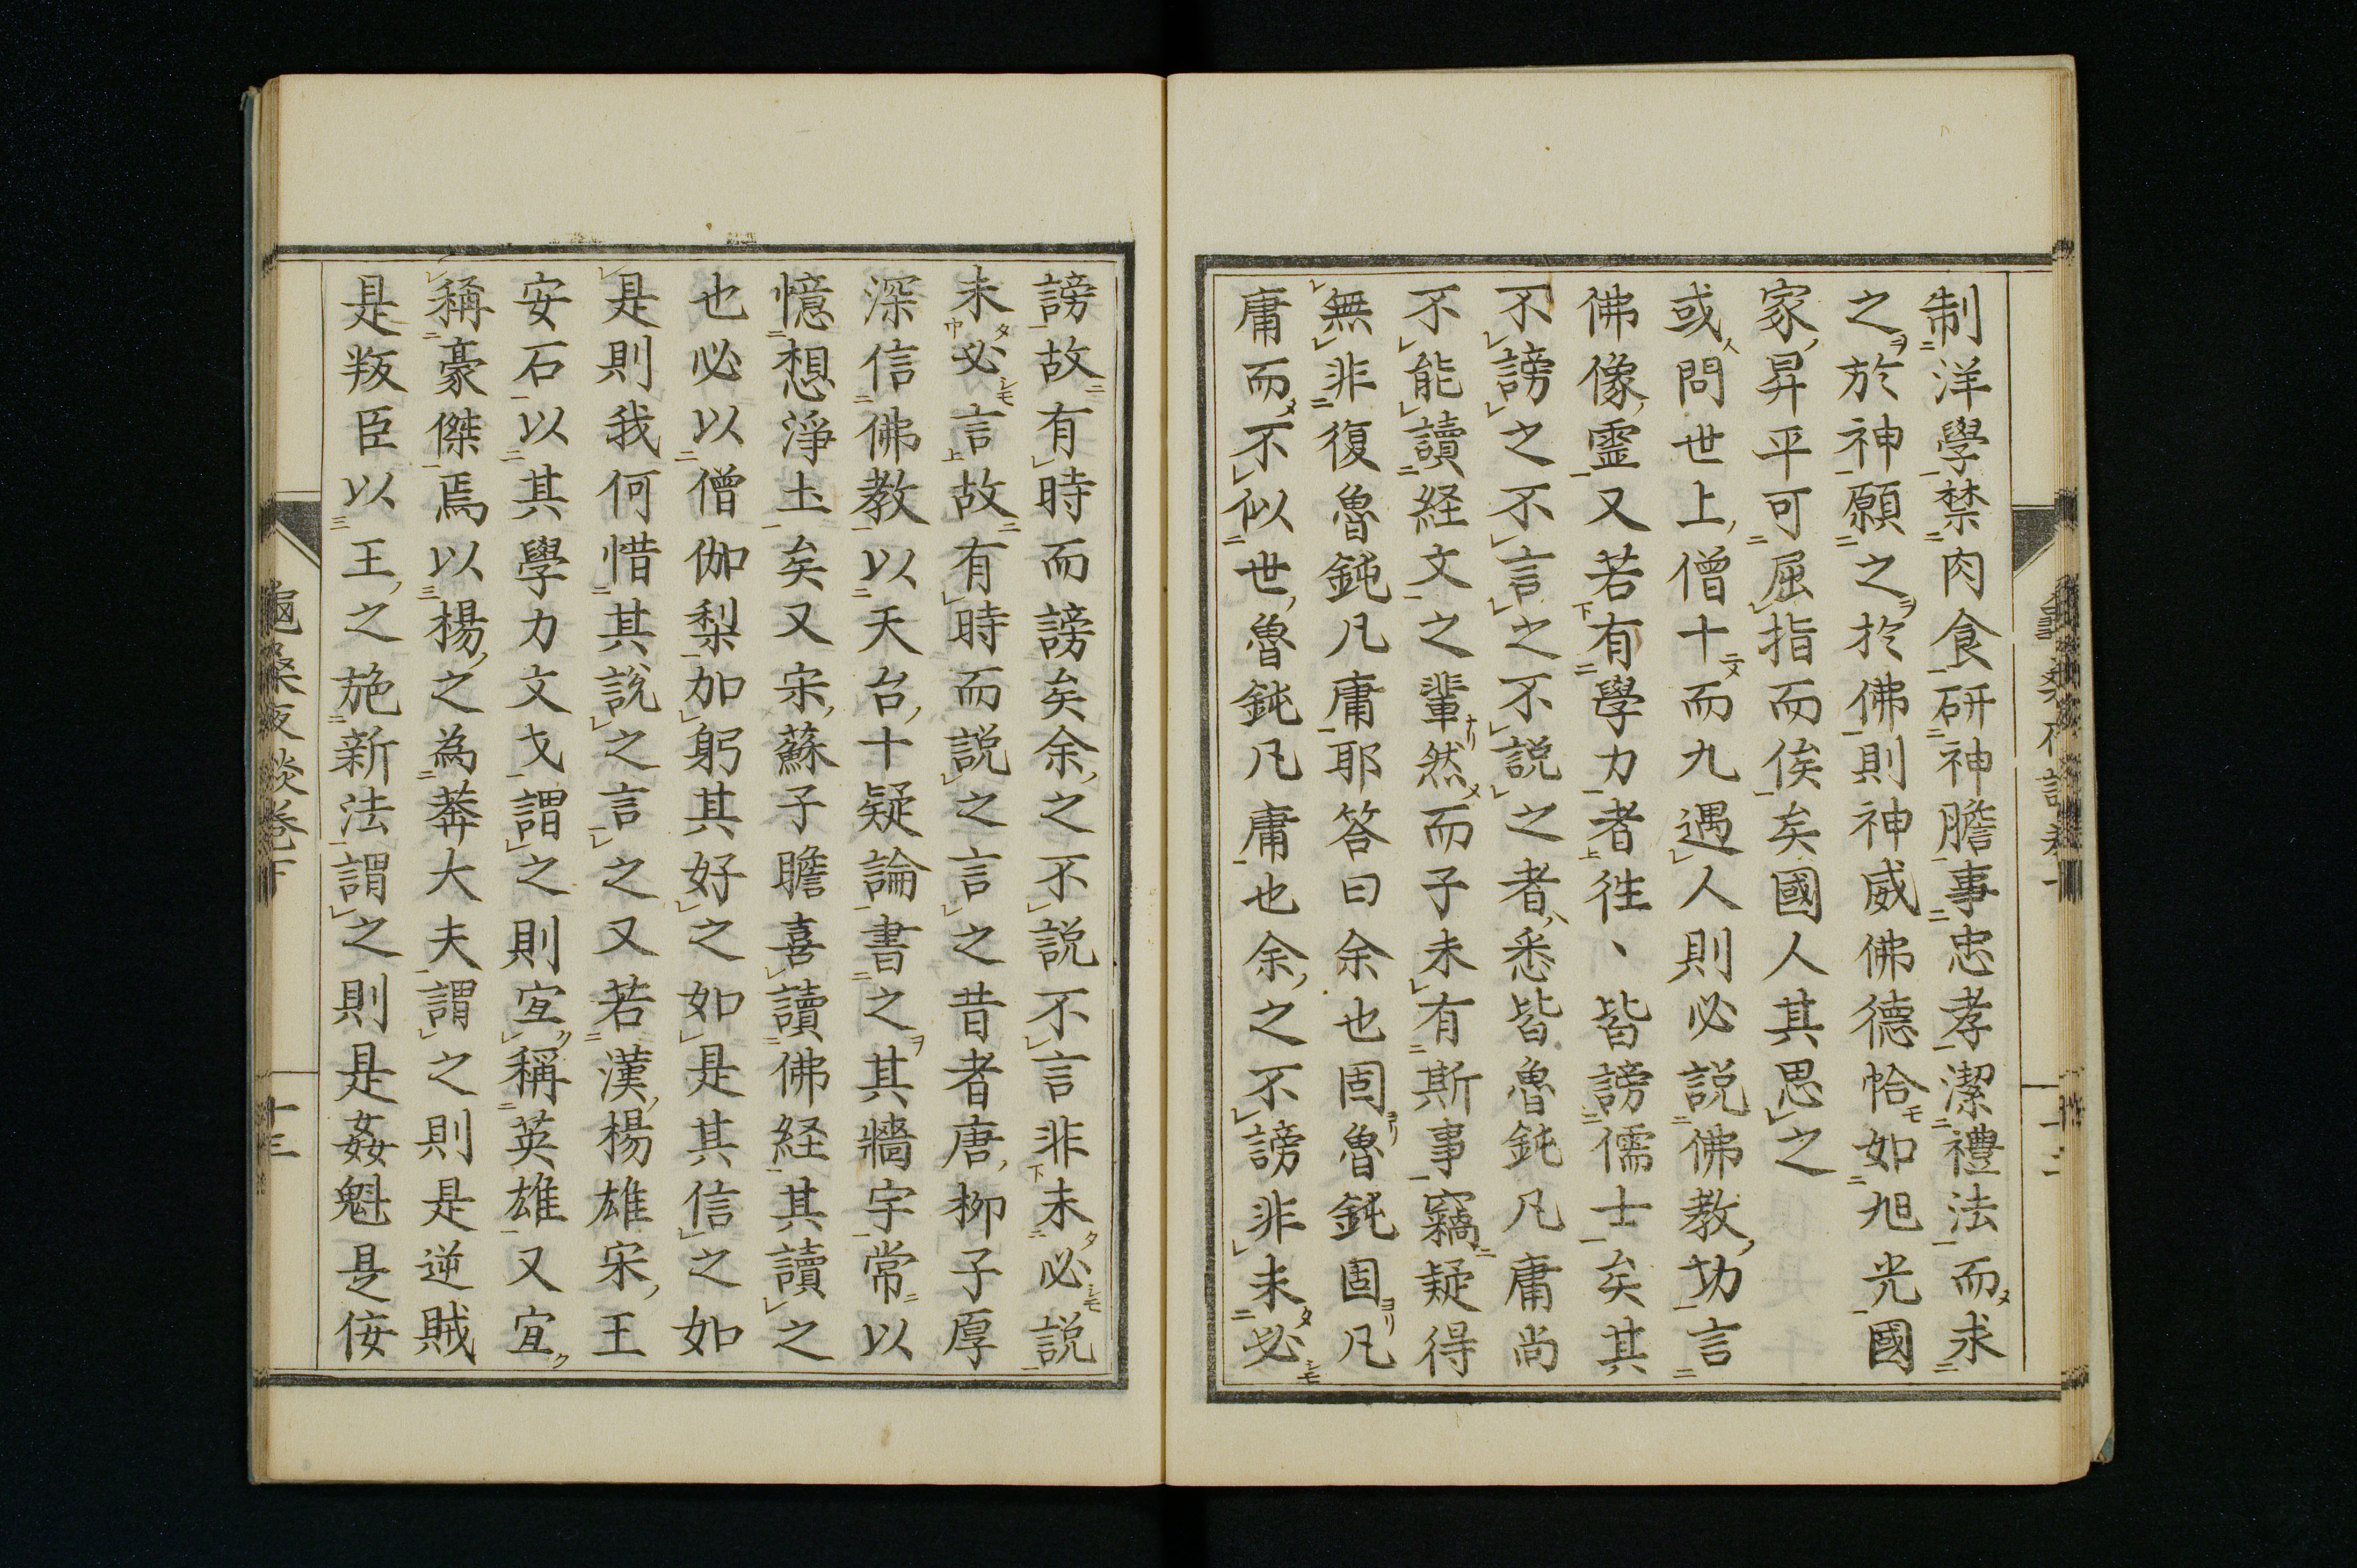 制洋學禁肉食研神膽事忠孝潔禮法而求
之於神願之於佛則神威佛德恰如旭光國
家昇平可屈指而俟矣國人其思之
或問世上僧十而九遇人則必説佛教功言
佛像霊又若有學力者徃、皆謗儒士矣其
不謗之不言之不説之者悉皆魯鈍凡庸尚
不能讀経文之輩然而子未有斯事竊疑得
無非復魯鈍凡庸耶答曰余也固魯鈍固凡
庸而不似世魯鈍凡庸也余之不謗非未必
謗故有時而謗矣余之不説不言非未必説
未必言故有時而説之言之昔者唐柳子厚
深信佛教以天台十疑論書之其牆宇常以
憶想淨土矣又宋蘇子瞻喜讀佛経其讀之
也必以僧伽梨加躬其好之如是其信之如
是則我何惜其説之言之又若漢楊雄宋王
安石以其學力文才謂之則宜稱英雄又宜
稱豪傑焉以楊之為莽大夫謂之則是逆賊
是叛臣以王之施新法謂之則是姦魁是侫
夜談卷下
十三